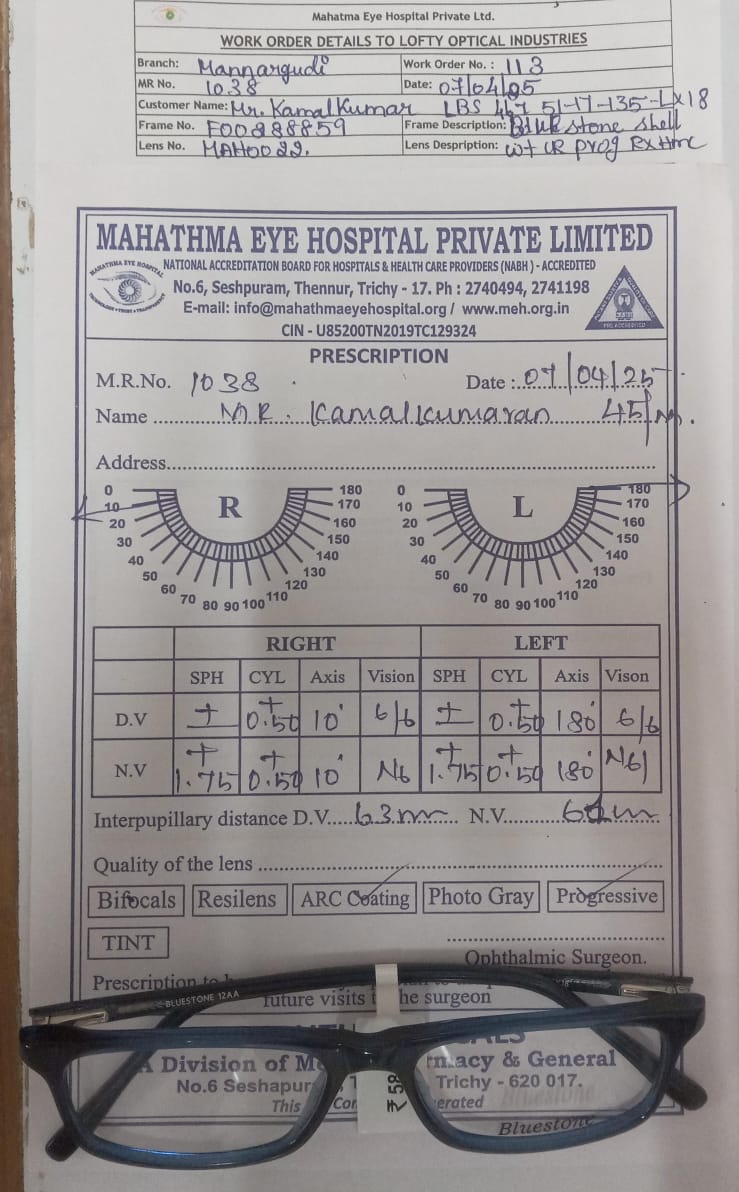 Mahatma Eye Hospital Private Ltd.
WORK ORDER DETAILS TO LOFTY OPTICAL INDUSTRIES
Branch: Mannargudi Work Order No. : 113
MR No. 1038 Date: 07/04/25
Customer Name: Mr. Kamal Kumar LBS 467 51-17-135-LX18
Frame No. F00288859 Frame Description: Blue stone shell
Lens No. MAH0022. Lens Despription: wt CR prog Rx Hmc
MAHATHMA EYE HOSPITAL PRIVATE LIMITED
MAHATHMA EYE HOSPITAL
NATIONAL ACCREDITATION BOARD FOR HOSPITALS & HEALTH CARE PROVIDERS (NABH) - ACCREDITED
No.6, Seshpuram, Thennur, Trichy - 17. Ph : 2740494, 2741198
E-mail: info@mahathmaeyehospital.org / www.meh.org.in
CIN - U85200TN2019TC129324
PRESCRIPTION
M.R.No. 1038 Date : 07/04/25
Name MR. Kamalkumaran 45/M.
Address
R L
0 10 20 30 40 50 60 70 80 90 100 110 120 130 140 150 160 170 180
0 10 20 30 40 50 60 70 80 90 100 110 120 130 140 150 160 170 180
RIGHT LEFT
SPH CYL Axis Vision SPH CYL Axis Vison
D.V ± +0.50 10° 6/6 ± +0.50 180° 6/6
N.V +1.75 +0.50 10° N6 +1.75 +0.50 180° N6
Interpupillary distance D.V. 63mm N.V.
Quality of the lens
Bifocals Resilens ARC Coating Photo Gray Progressive
TINT
Ophthalmic Surgeon.
Prescription to
future visits the surgeon
BLUESTONE 12AA
A Division of M macy & General
No.6 Seshapur Trichy - 620 017.
This Con erated
₹58
Bluestone